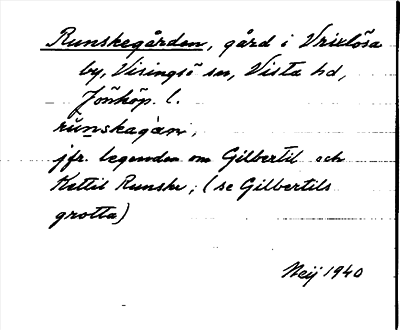 Runskegården, gård i Vrixlösa
by, Visingsö sn, Vista hd,
Jönköp. l.
rùnskagàɳ,
jfr. legenden om Gilbertil och
Kettil Runske; (se Gilbertils
grotta)
Neij 1940